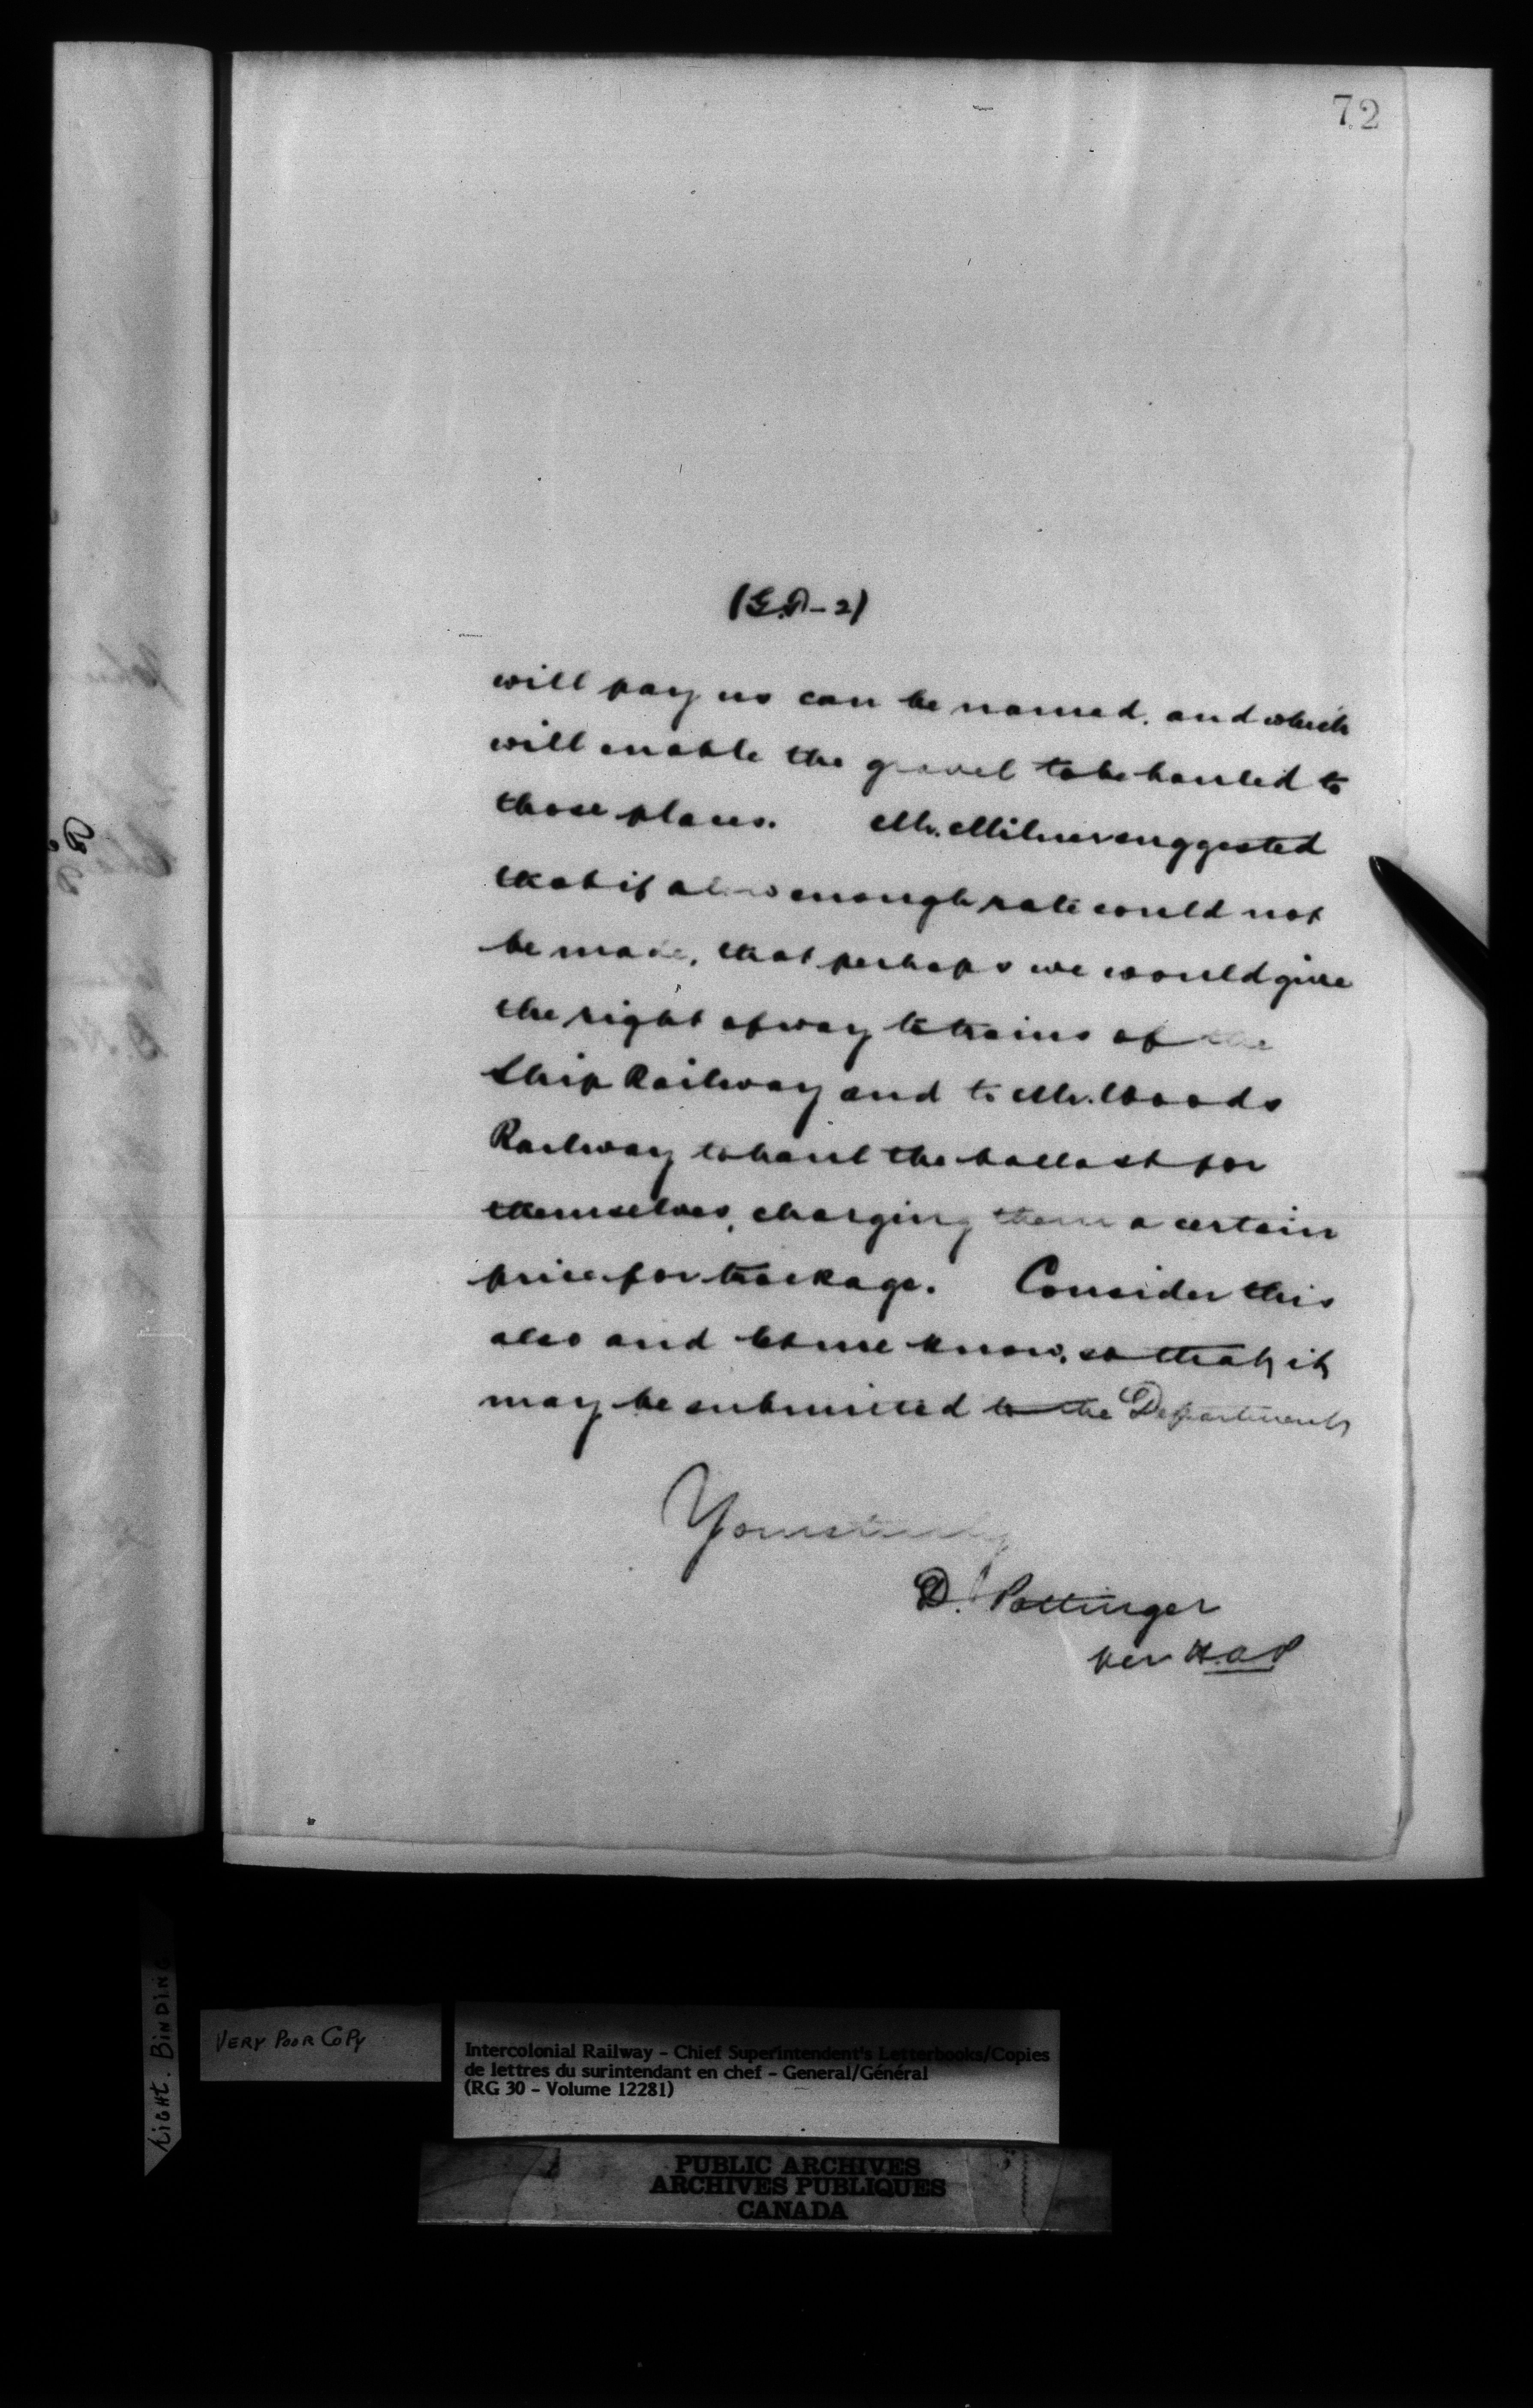 72
(G.P-2)
will pay us can be named, and which
will enable the gravel to be hauled to
those places. Mr. Milner suggested
that if a low enough rate could not
be made, that perhaps we would give
the right of way to trains of the
Ship Railway and to Mr. Woods
Railway to haul the ballast for
themselves, charging them a certain
price for trackage. Consider this
also and let me know, so that it
may be submitted to the Department
Yours truly
D. Pottinger
per H.A.P
LIGHT. BINDING
VERY POOR COPY
Intercolonial Railway - Chief Superintendent's Letterbooks/Copies
de lettres du surintendant en chef - General/Général
(RG 30 - Volume 12281)
PUBLIC ARCHIVES
ARCHIVES PUBLIQUES
CANADA